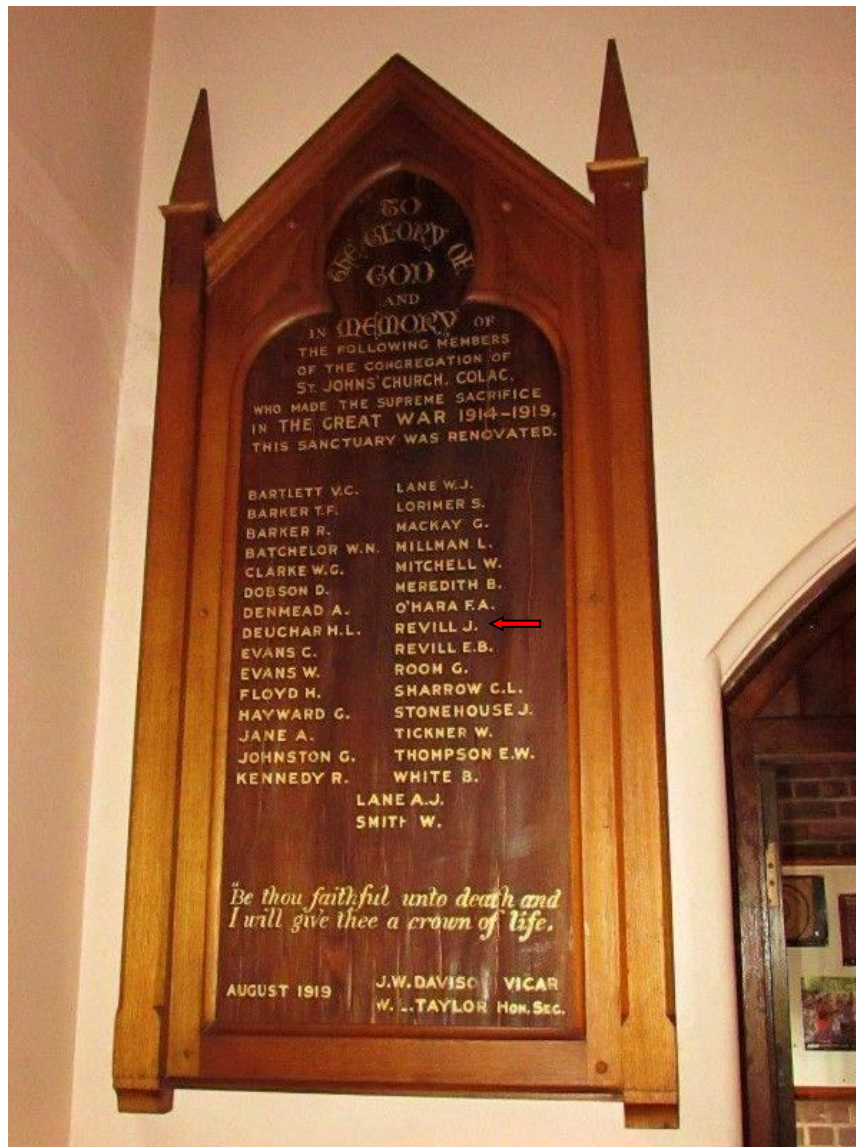 TO
THE GLORY OF
GOD
AND
IN MEMORY OF
THE FOLLOWING MEMBERS
OF THE CONGREGATION OF
ST. JOHNS' CHURCH, COLAC,
WHO MADE THE SUPREME SACRIFICE
IN THE GREAT WAR 1914-1919,
THIS SANCTUARY WAS RENOVATED.
BARTLETT V.C.
BARKER T.F.
BARKER R.
BATCHELOR W.N.
CLARKE W.G.
DOBSON D.
DENMEAD A.
DEUCHAR H.L.
EVANS C.
EVANS W.
FLOYD H.
HAYWARD G.
JANE A.
JOHNSTON G.
KENNEDY R.
LANE W.J.
LORIMER S.
MACKAY G.
MILLMAN L.
MITCHELL W.
MEREDITH B.
O'HARA F.A.
REVILL J.
REVILL E.B.
ROOM G.
SHARROW C.L.
STONEHOUSE J.
TICKNER W.
THOMPSON E.W.
WHITE B.
LANE A.J.
SMITH W.
"Be thou faithful unto death and
I will give thee a crown of life.
AUGUST 1919
J.W. DAVISO VICAR
W. TAYLOR HON. SEC.